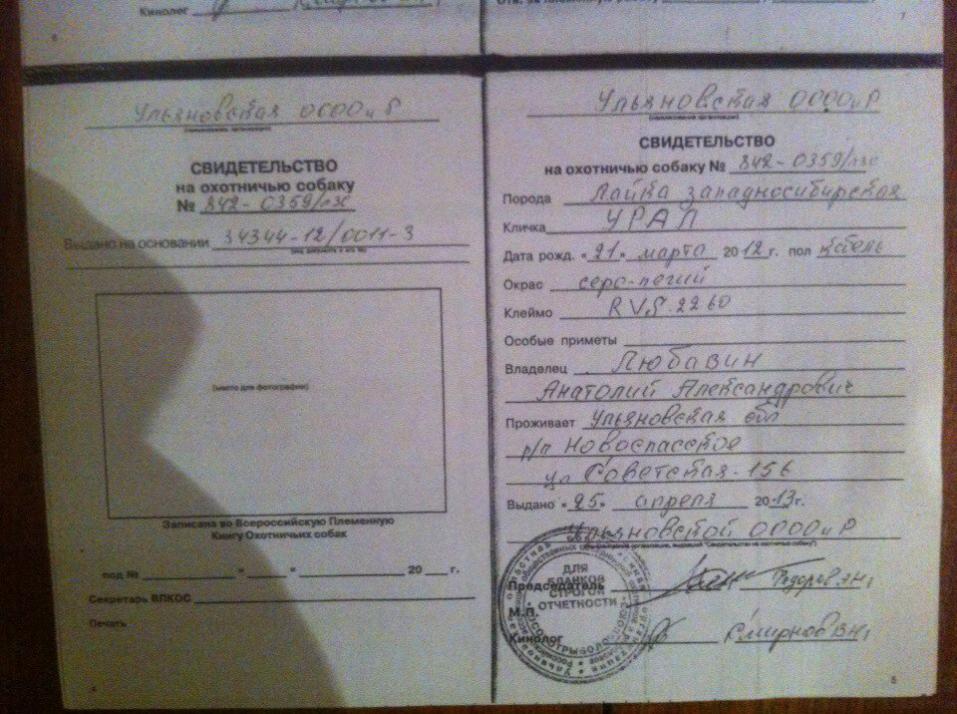 Кинолог
6
7
Ульяновская ОООО и Р
(наименование организации)
СВИДЕТЕЛЬСТВО
на охотничью собаку
№ 842-0359/лзс
Выдано на основании 34344-12/0011-3
(место для фотографии)
Записана во Всероссийскую Племенную
Книгу Охотничьих собак
под № " " 20 г.
Секретарь ВПКОС
Печать
4
Ульяновская ОООО и Р
(наименование организации)
СВИДЕТЕЛЬСТВО
на охотничью собаку № 842-0359/лзс
Порода Лайка западносибирская
Кличка УРАЛ
Дата рожд. "21" марта 2012 г. пол кобель
Окрас серо-пегий
Клеймо RVG 2260
Особые приметы
Владелец Любавин
Анатолий Александрович
Проживает Ульяновская обл
р/п Новоспасское
ул Советская-156
Выдано "25" апреля 2013 г.
Ульяновской ОООО и Р
Председатель Федоров
М.П.
Кинолог Смирнов В.Н.
ДЛЯ
БЛАНКОВ
СТРОГОЙ
ОТЧЕТНОСТИ
5